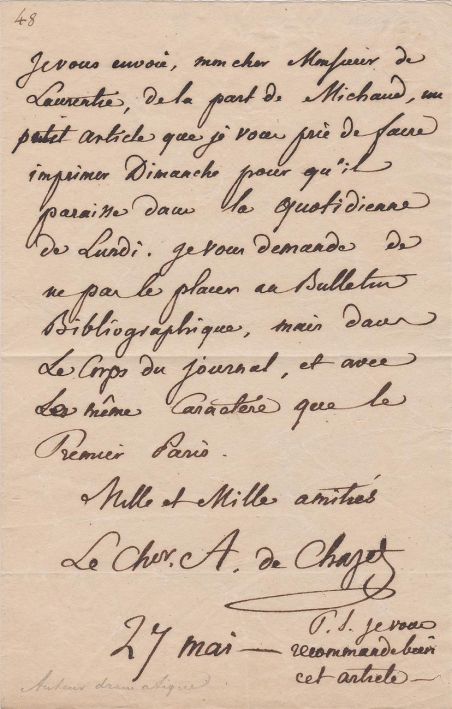 48
Je vous envoie, mon cher Monsieur de
Laurentie, de la part de Michaud, un
petit article que je vous prie de faire
imprimer Dimanche pour qu'il
paraisse dans la Quotidienne
de Lundi. Je vous demande de
ne pas le placer au Bulletin
Bibliographique, mais dans
Le Corps du journal, et avec
Le même Caractère que le
Premier Paris.
Mille et Mille amitiés
Le Cher. A. de Chazet
27 mai —
P. S. Je vous
recommande bien
cet article —
Auteur dramatique